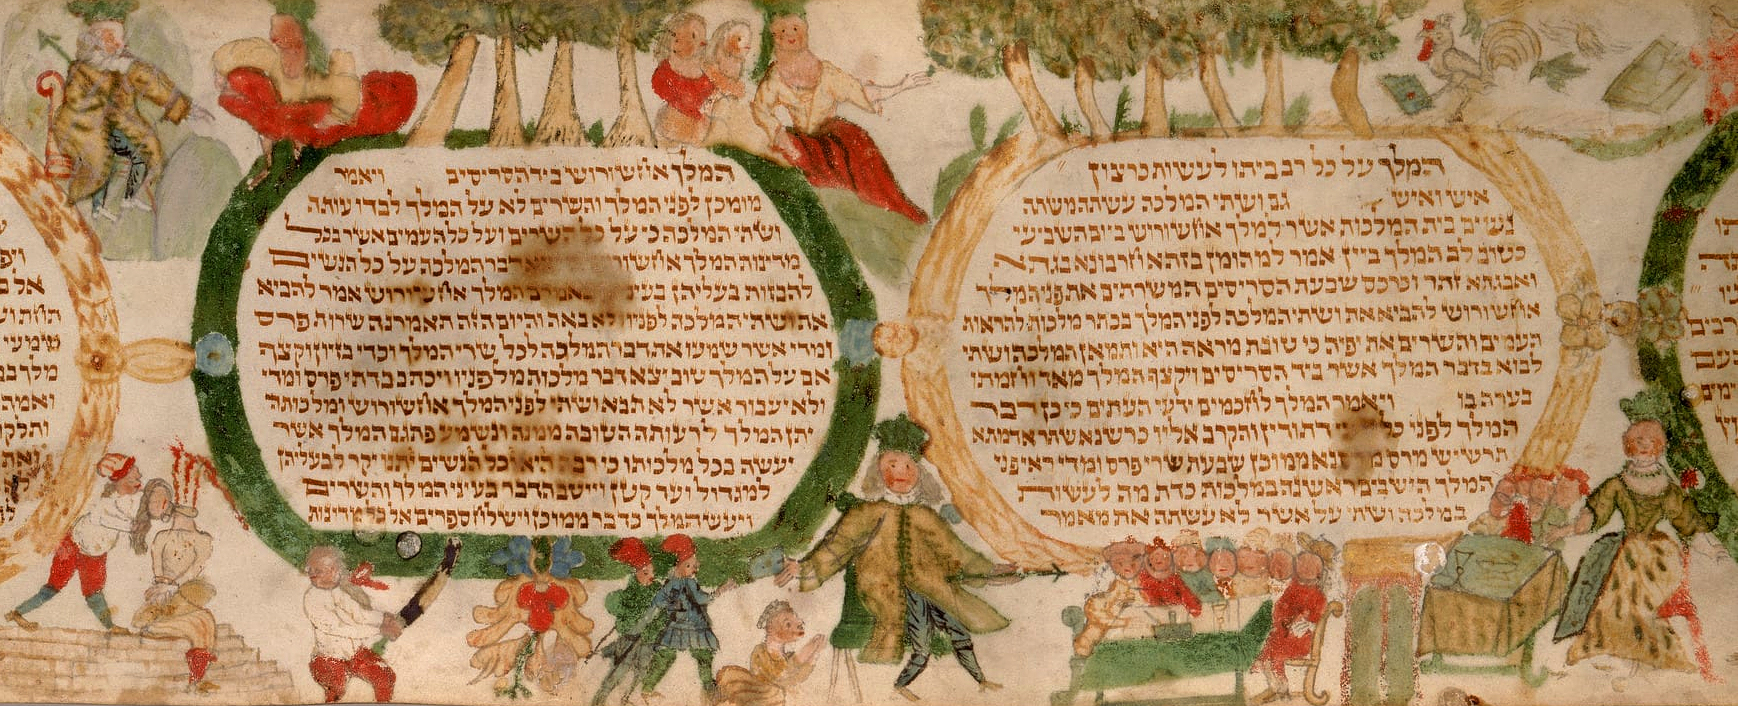 המלך על כל רב ביתו לעשות כרצון
איש ואיש גם ושתי המלכה עשתה משתה
נשים בית המלכות אשר למלך אחשורוש ביום השביעי
כטוב לב המלך ביין אמר למהומן בזתא חרבונא בגתא
ואבגתא זתר וכרכס שבעת הסריסים המשרתים את פני המלך
אחשורוש להביא את ושתי המלכה לפני המלך בכתר מלכות להראות
העמים והשרים את יפיה כי טובת מראה היא ותמאן המלכה ושתי
לבוא בדבר המלך אשר ביד הסריסים ויקצף המלך מאד וחמתו
בערה בו ויאמר המלך לחכמים ידעי העתים כי כן דבר
המלך לפני כל דת ודין והקרב אליו כרשנא שתר אדמתא
תרשיש מרס ממוכן שבעת שרי פרס ומדי ראי פני
המלך הישבים ראשנה במלכות כדת מה לעשות
במלכה ושתי על אשר לא עשתה את מאמר
המלך אחשורוש ביד הסריסים ויאמר
מומכן לפני המלך והשרים לא על המלך לבדו עותה
ושתי המלכה כי על כל השרים ועל כל העמים אשר בכל
מדינות המלך אחשורוש דבר המלכה על כל הנשים
להבזות בעליהן באמרם המלך אחשורוש אמר להביא
את ושתי המלכה לפניו ולא באה והיום הזה תאמרנה שרות פרס
ומדי אשר שמעו את דבר המלכה לכל שרי המלך וכדי בזיון וקצף
אם על המלך טוב יצא דבר מלכות מלפניו ויכתב בדתי פרס ומדי
ולא יעבור אשר לא תבוא ושתי לפני המלך אחשורוש ומלכותה
יתן המלך לרעותה הטובה ממנה ונשמע פתגם המלך אשר
יעשה בכל מלכותו כי רבה היא וכל הנשים יתנו יקר לבעליהן
למגדול ועד קטן וייטב הדבר בעיני המלך והשרים
ויעש המלך כדבר ממוכן וישלח ספרים אל כל מדינות